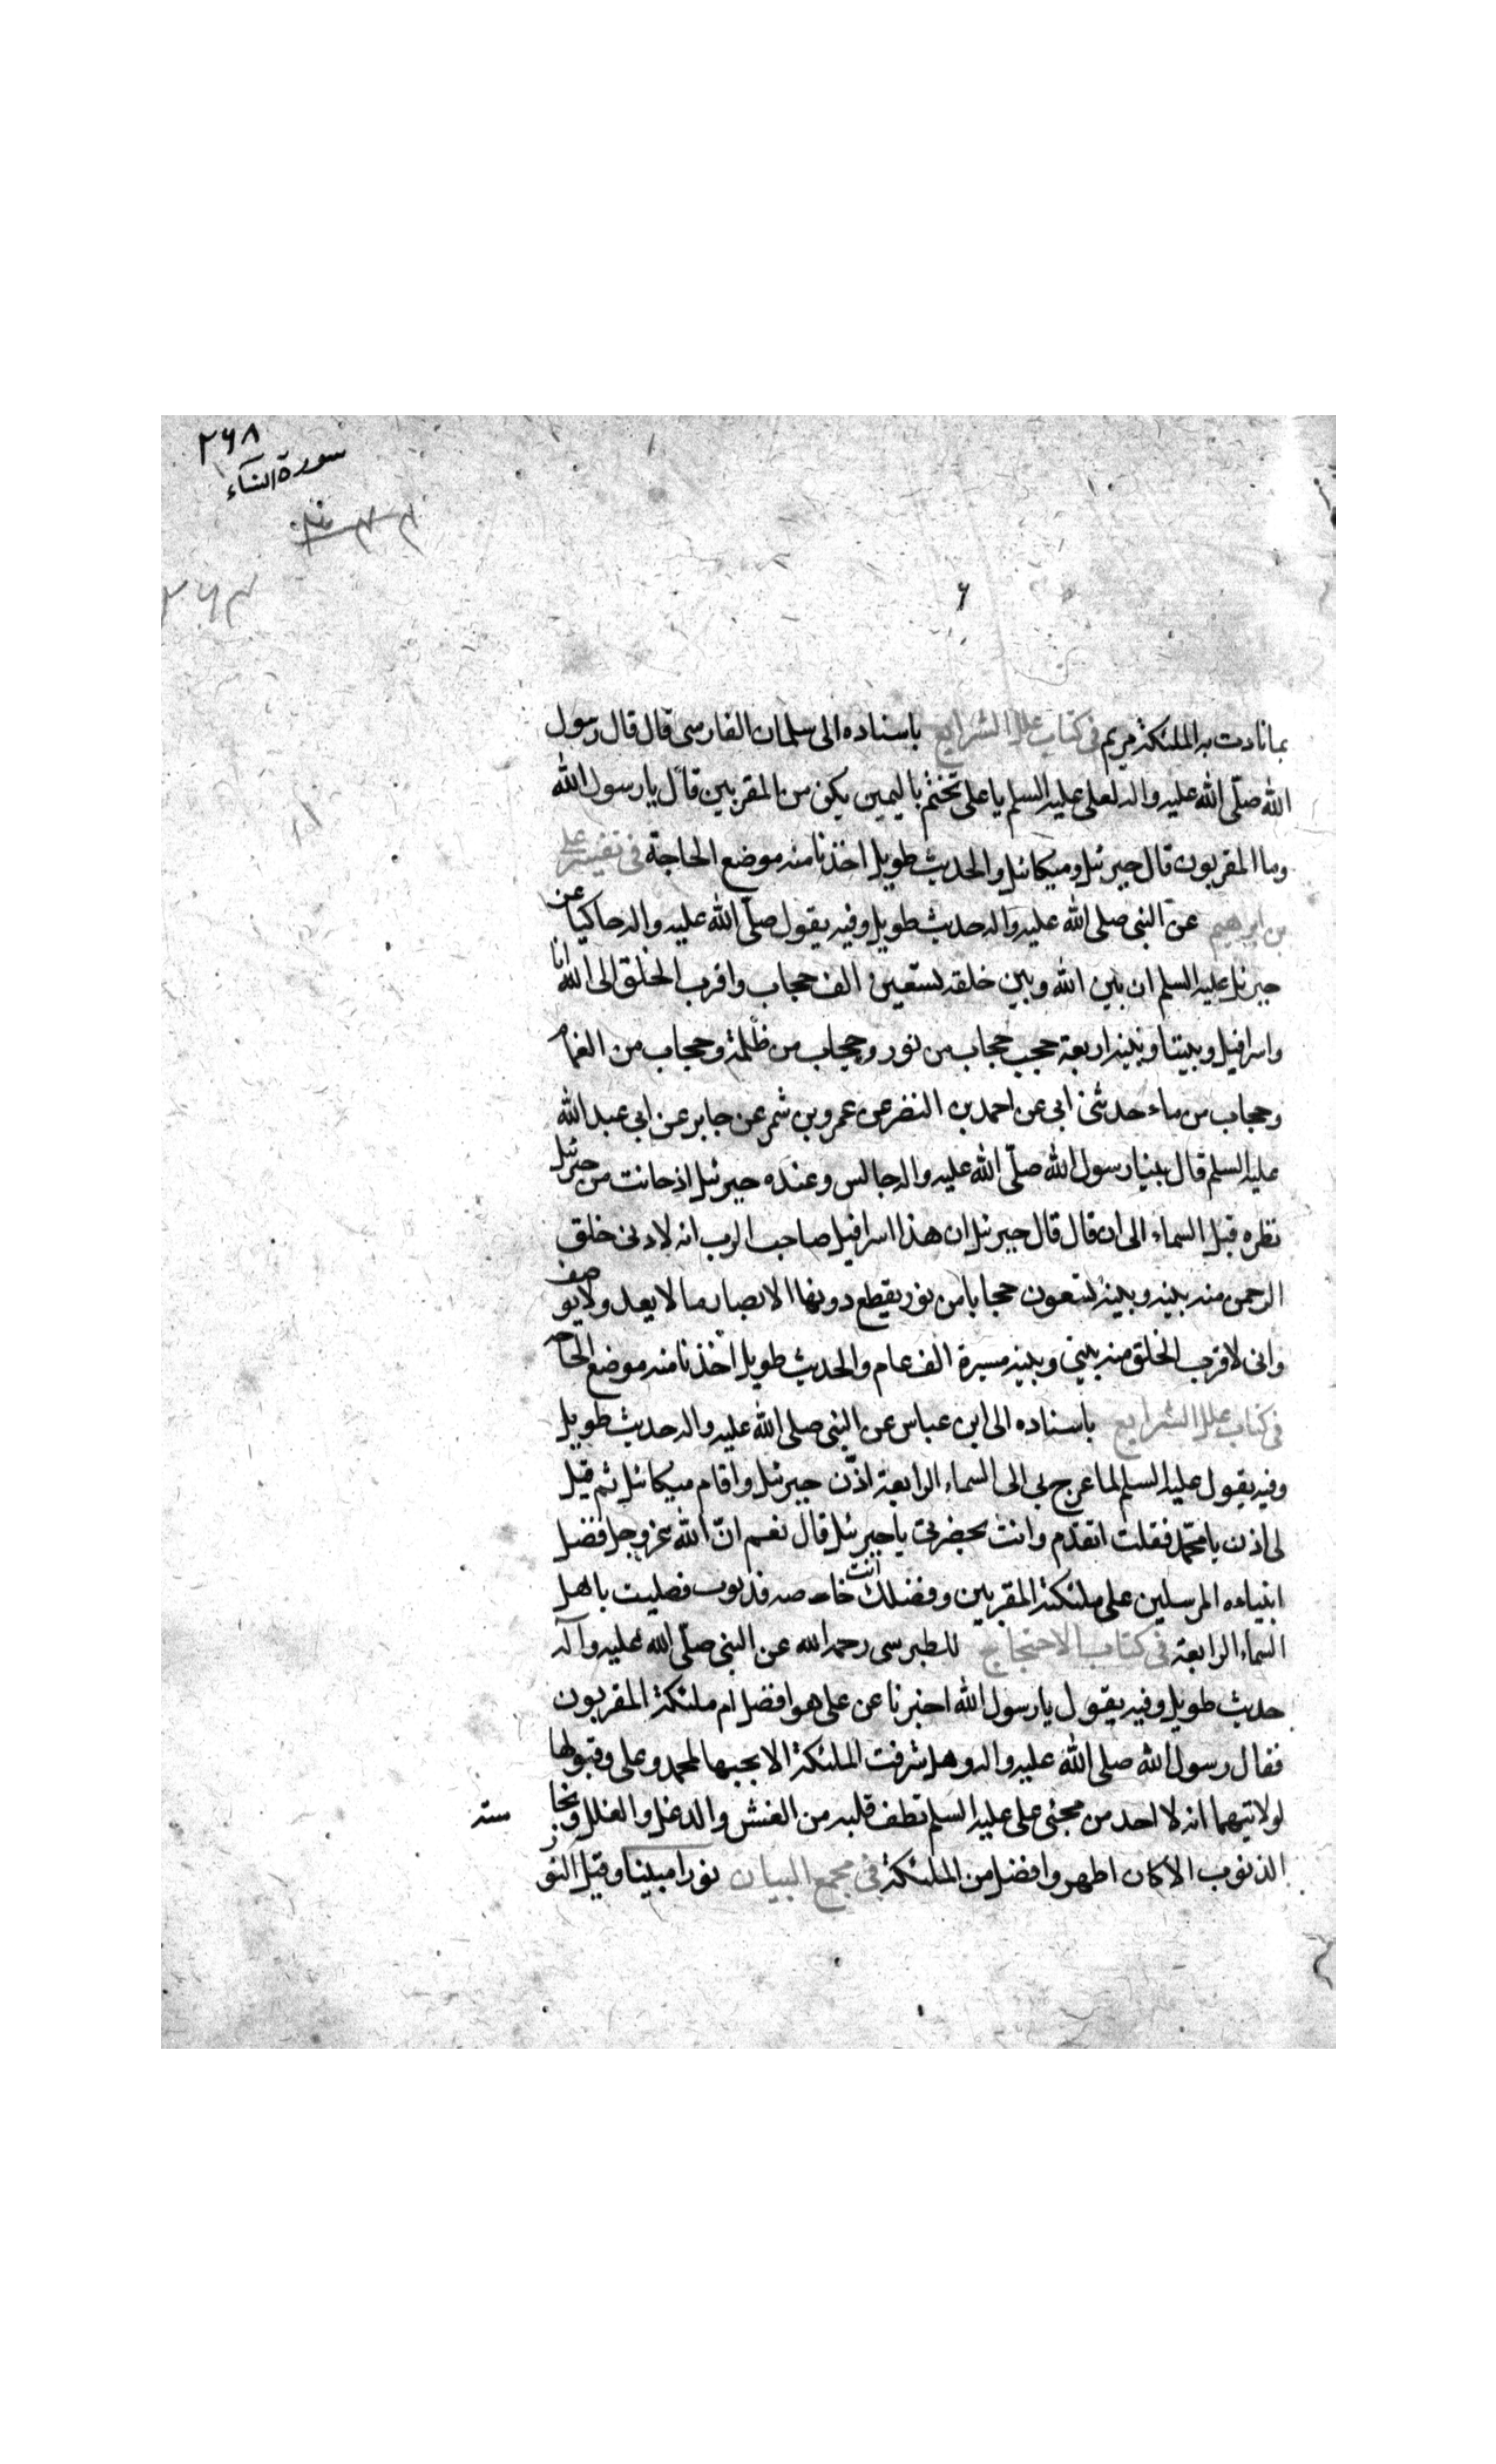 ۲۶۸
سورة النساء
۲۶۳
۶
بما نادت به الملئكة مريم فى كتاب علل الشرايع باسناده الى سلمان الفارسى قال قال رسول
الله صلّى الله عليه واله لعلى عليه السلم يا على تختم باليمين يكن من المقربين قال يا رسول الله
وما المقربون قال جبرئيل وميكائيل والحديث طويل اخذنا منه موضع الحاجة فى تفسير على
بن ابرهيم عن النبى صلى الله عليه واله حديث طويل وفيه يقول صلّى الله عليه واله حاكيا عن
جبرئيل عليه السلم ان بين الله وبين خلقه تسعين الف حجاب واقرب الخلق الى الله انا
واسرافيل وبيننا وبينه اربعة حجب حجاب من نور وحجاب من ظلمة وحجاب من الغمام
وحجاب من ماء حدثنى ابى عن احمد بن النضر عن عمرو بن شمر عن جابر عن ابى عبد الله
عليه السلم قال بينا رسول الله صلّى الله عليه واله جالس وعنده جبرئيل اذ حانت من جبرئيل
نظره قبل السماء الى ان قال قال جبرئيل ان هذا اسرافيل صاحب الرب انه لادنى خلق
الرحمن منه بينه وبينه تسعون حجابا من نور يقطع دونها الابصار ما لا يعد ولا يوصف
وانى لاقرب الخلق منه بينى وبينه مسيرة الف عام والحديث طويل اخذنا منه موضع الحاجه
فى كتاب علل الشرايع باسناده الى ابن عباس عن النبى صلى الله عليه واله حديث طويل
وفيه يقول عليه السلم لما عرج بى الى السماء الرابعة اذّن جبرئيل واقام ميكائيل ثم قيل
لى اذن يا محمّد فقلت اتقدّم وانت بحضرتى يا جبرئيل قال نعم انّ الله عز وجل فضل
انبياءه المرسلين على ملئكته المقربين وفضلك انت خاصه فدنوت فصليت باهل
السماء الرابعة فى كتاب الاحتجاج للطبرسى رحمه الله عن النبى صلّى الله عليه وآله
حديث طويل وفيه يقول يا رسول الله اخبرنا عن على هو افضل ام ملئكة المقربون
فقال رسول الله صلى الله عليه واله وهل شرفت الملئكة الا بحبها لمحمد وعلى وقبولها
لولايتهما انه لا احد من محبى على عليه السلم نظف قلبه من الغش والدغل والغلل ونجاسته
الذنوب الا كان اطهر وافضل من الملئكة فى مجمع البيان نورا مبينا وقيل النور